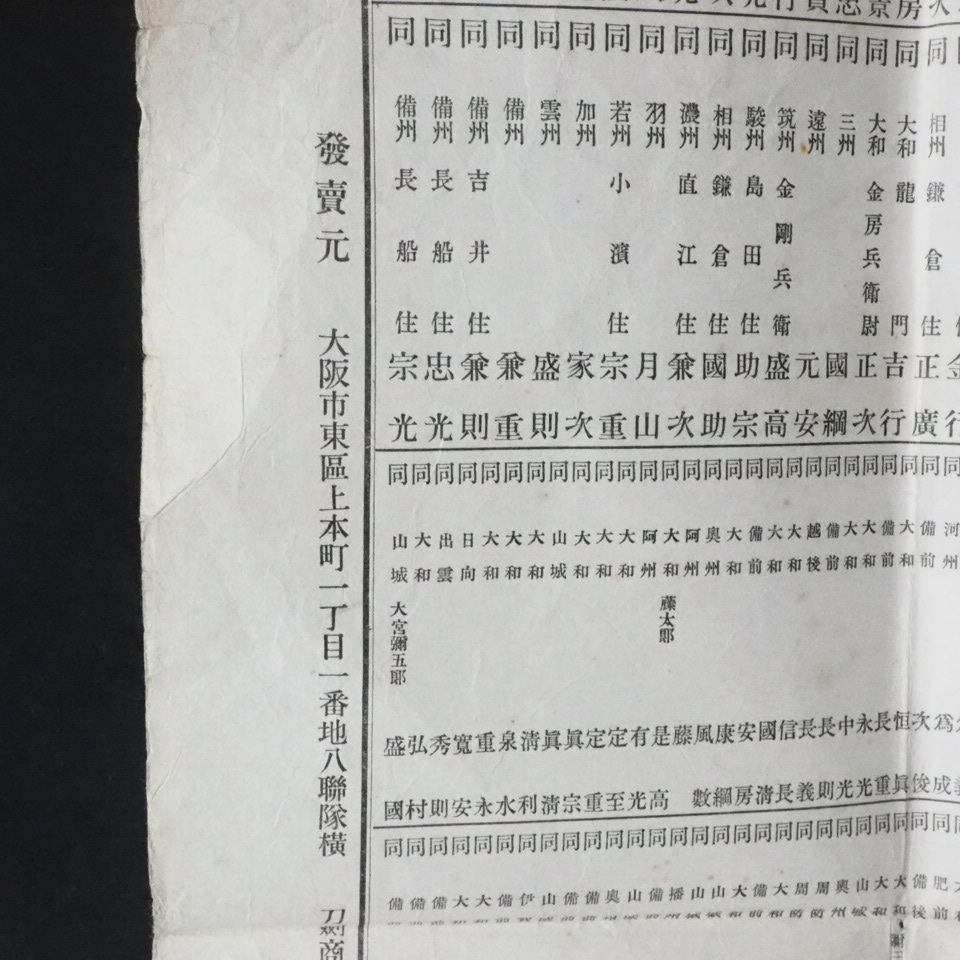 同 相州鎌倉住 正廣
同 大和龍門 吉行
同 大和金房兵衛尉 正次
同 三州 國綱
同 遠州 元安
同 筑州金剛兵衛 盛高
同 駿州島田住 助宗
同 相州鎌倉住 國助
同 濃州直江住 兼次
同 羽州 月山
同 若州小濱住 宗重
同 加州 家次
同 雲州 盛則
同 備州 兼重
同 備州吉井住 兼則
同 備州長船住 忠光
同 備州長船住 宗光
同 河州 為成
同 備前 次俊
同 大和 恒眞
同 備前 長重
同 大和 永光
同 大和 中光
同 備前 長則
同 越後 長義
同 大和 信長
同 大和 國清
同 備前 安房
同 大和 康綱
同 奥州 風數
同 阿州 藤
同 大和 藤太郎 是高
同 阿州 有光
同 大和 定至
同 大和 定重
同 大和 眞宗
同 山城 眞清
同 大和 清利
同 大和 泉水
同 大和 重永
同 日向 寛安
同 出雲 秀則
同 大和 弘村
同 山城 大宮彌五郎 盛國
同 肥前
同 備前
同 大和
同 大和
同 山城
同 奥州
同 周防
同 周防
同 大和
同 備前
同 大和
發賣元 大阪市東區上本町一丁目一番地八聯隊横 刀劍商